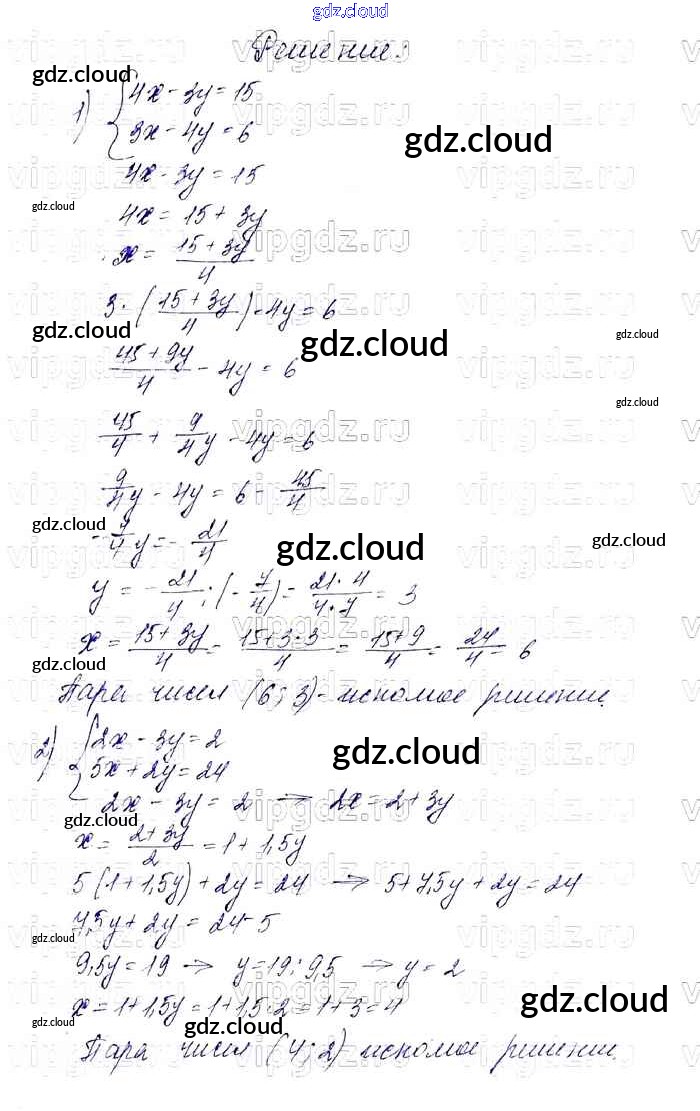 gdz.cloud
Решение:
gdz.cloud
1) { 4x - 3y = 15
3x - 4y = 6
gdz.cloud
4x - 3y = 15
gdz.cloud
4x = 15 + 3y
x = (15 + 3y)/4
3 · ((15 + 3y)/4) - 4y = 6
gdz.cloud
gdz.cloud
gdz.cloud
(45 + 9y)/4 - 4y = 6
gdz.cloud
45/4 + 9/4 y - 4y = 6
9/4 y - 4y = 6 - 45/4
gdz.cloud
-7/4 y = - 21/4
gdz.cloud
gdz.cloud
y = - 21/4 : (- 7/4) = (21 · 4)/(4 · 7) = 3
x = (15 + 3y)/4 = (15 + 3·3)/4 = (15 + 9)/4 = 24/4 = 6
gdz.cloud
Пара чисел (6; 3) - искомое решение.
2) { 2x - 3y = 2
5x + 2y = 24
gdz.cloud
2x - 3y = 2 → 2x = 2 + 3y
gdz.cloud
x = (2 + 3y)/2 = 1 + 1,5y
5(1 + 1,5y) + 2y = 24 → 5 + 7,5y + 2y = 24
7,5y + 2y = 24 - 5
gdz.cloud
9,5y = 19 → y = 19 : 9,5 → y = 2
x = 1 + 1,5y = 1 + 1,5·2 = 1 + 3 = 4
gdz.cloud
gdz.cloud
gdz.cloud
Пара чисел (4; 2) искомое решение.
vipgdz.ru